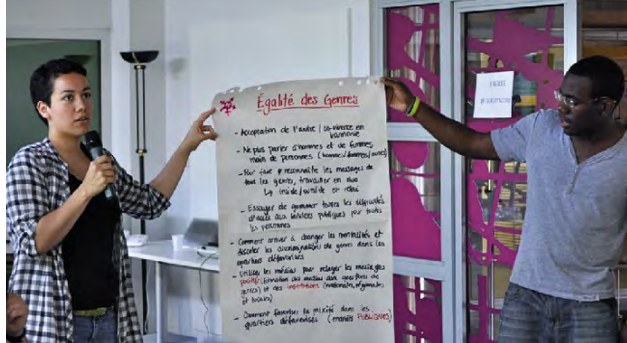 Egalité des Genres
- Acceptation de l'autre / co-vivance en
harmonie
- Ne plus parler d'hommes et de femmes
mais de personnes (hommes/femmes/autres)
- Pour faire reconnaître les messages de
tous les genres, travailler en duo
- Essayer de gommer toutes les difficultés
d'accès aux services publiques pour toutes
les personnes
- Comment arriver à changer les mentalités et
discrimination du genre dans les
quartiers défavorisés
- Utiliser les médias pour relayer les messages
positifs (formation des médias aux questions de
genres) et des institutions (nationales, régionales
et locales)
- Comment favoriser la mixité dans les
quartiers défavorisés (marchés PUBLIQUES)